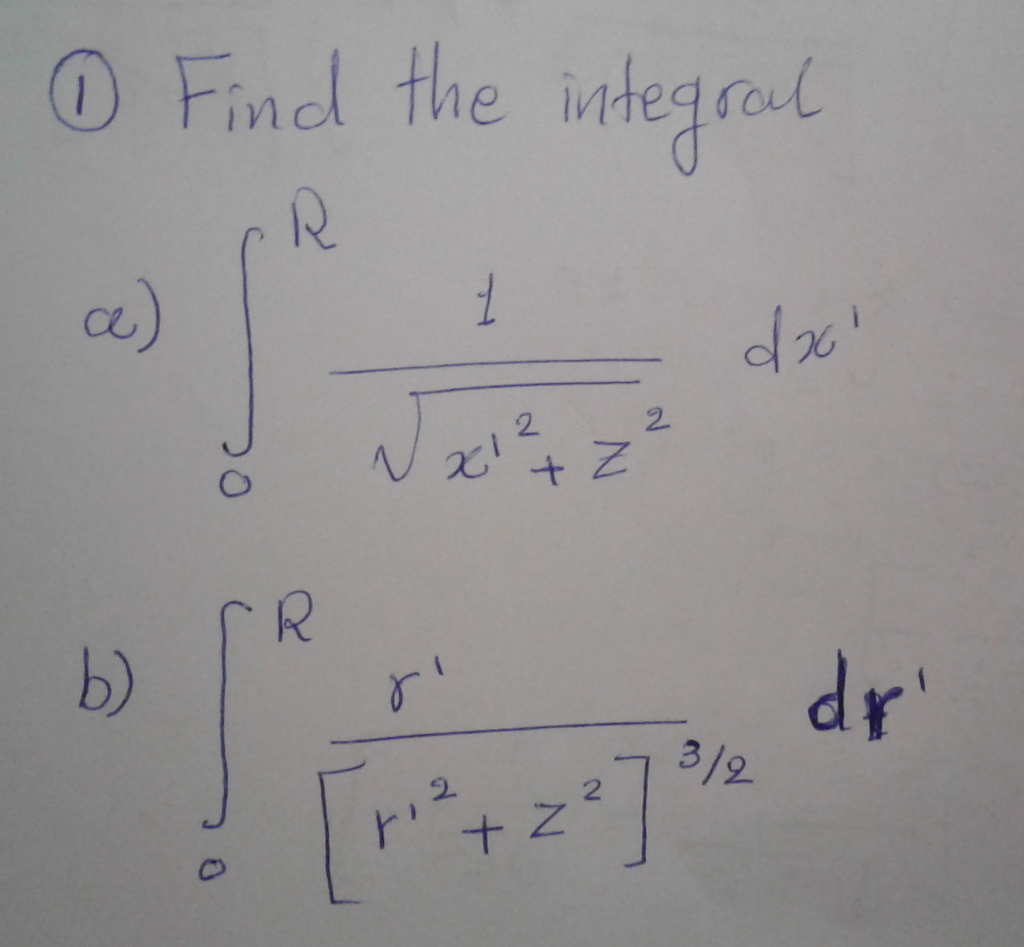 ① Find the integral
a) ∫₀ᴿ 1/√(x'² + z²) dx'
b) ∫₀ᴿ r'/[r'² + z²]^(3/2) dr'